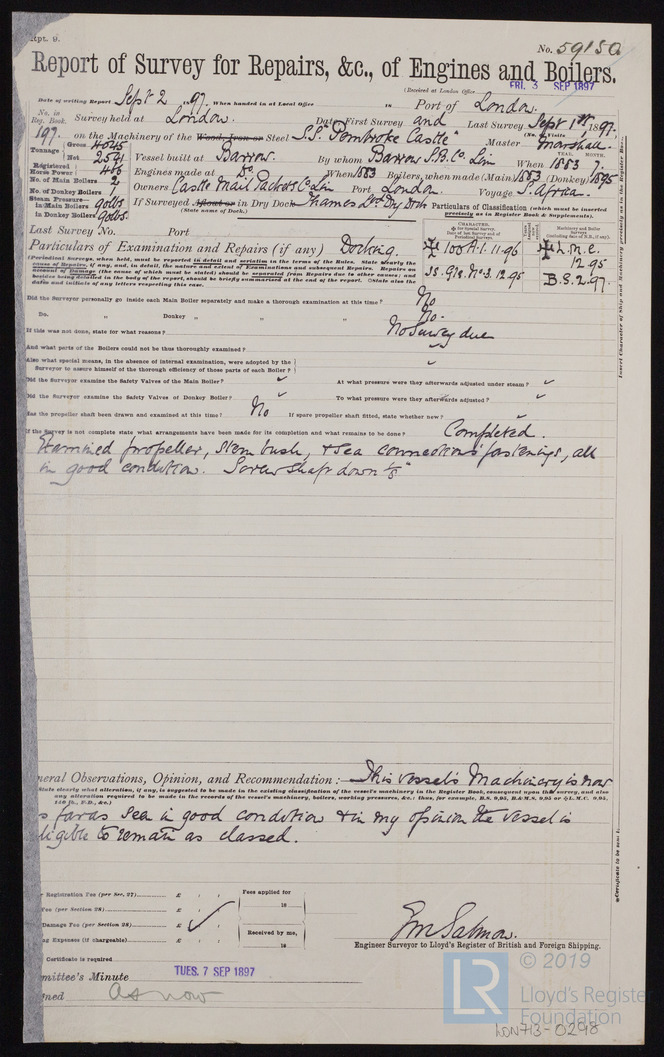 Rpt. 9.
No. 59150
Report of Survey for Repairs, &c., of Engines and Boilers.
(Received at London Office FRI. 3 SEP 1897
Date of writing Report Sept 2 97. When handed in at Local Office 18 Port of London.
No. in Reg. Book. Survey held at London. Date, First Survey and Last Survey Sept 1st, 1897.
(No. of Visits
197. on the Machinery of the Wood, Iron or Steel S.S. "Pembroke Castle" Master Marshall.
Tonnage Gross 4045
Net 2591
Vessel built at Barrow. By whom Barrow S.B. Co. Lim When 1883 7.
YEAR. MONTH.
Registered Horse Power 466
Engines made at Do. When 1883 Boilers, when made (Main) 1883 (Donkey) 1895
No. of Main Boilers 2
No. of Donkey Boilers 1
Owners Castle Mail Packets Co. Lim Port London. Voyage S. Africa.
Steam Pressure in Main Boilers 90lbs.
in Donkey Boilers 90lbs.
If Surveyed Afloat or in Dry Dock Thames Dry Dock
(State name of Dock.)
Particulars of Classification (which must be inserted precisely as in Register Book & Supplements).
Last Survey No. Port
Particulars of Examination and Repairs (if any) Docking.
CHARACTER.
100 A.1. 11.96
SS. No. 3. 12.95
L.M.C. 12 95
B.S. 2.97.
Did the Surveyor personally go inside each Main Boiler separately and make a thorough examination at this time? No
Do. " Donkey " " " No.
If this was not done, state for what reasons? No Survey due
And what parts of the Boilers could not be thus thoroughly examined?
Also what special means, in the absence of internal examination, were adopted by the
Surveyor to assure himself of the thorough efficiency of those parts of each Boiler?
Did the Surveyor examine the Safety Valves of the Main Boiler? At what pressure were they afterwards adjusted under steam?
Did the Surveyor examine the Safety Valves of Donkey Boiler? To what pressure were they afterwards adjusted?
Has the propeller shaft been drawn and examined at this time? No If spare propeller shaft fitted, state whether new?
If the Survey is not complete state what arrangements have been made for its completion and what remains to be done? Completed.
Examined propeller, stern bush, & sea connections fastenings, all
in good condition. Screw shaft down 1/8"
neral Observations, Opinion, and Recommendation:— This vessel's Machinery is now
(State clearly what alteration, if any, is suggested to be made in the existing classification of the vessel's machinery in the Register Book, consequent upon this survey, and also
any alteration required to be made in the records of the vessel's machinery, boilers, working pressures, &c.: thus, for example, B.S. 9,95, B.&M.S. 9,95 or L.M.C. 9,95,
140 lb., F.D., &c.)
s far as seen in good condition & in my opinion the vessel is
ligible to remain as classed.
Registration Fee (per Sec. 27) £ : :
Fee (per Section 28) £ : :
Damage Fee (per Section 28) £ : :
ng Expenses (if chargeable) £ : :
Fees applied for
18
Received by me,
18
Certificate is required
Salmon.
Engineer Surveyor to Lloyd's Register of British and Foreign Shipping.
mmittee's Minute TUES. 7 SEP 1897
ned as now
Insert Character of Ship and Machinery precisely as in the Register Book.
Certificate to be sent
LR
© 2019
Lloyd's Register
Foundation
LON713-0298